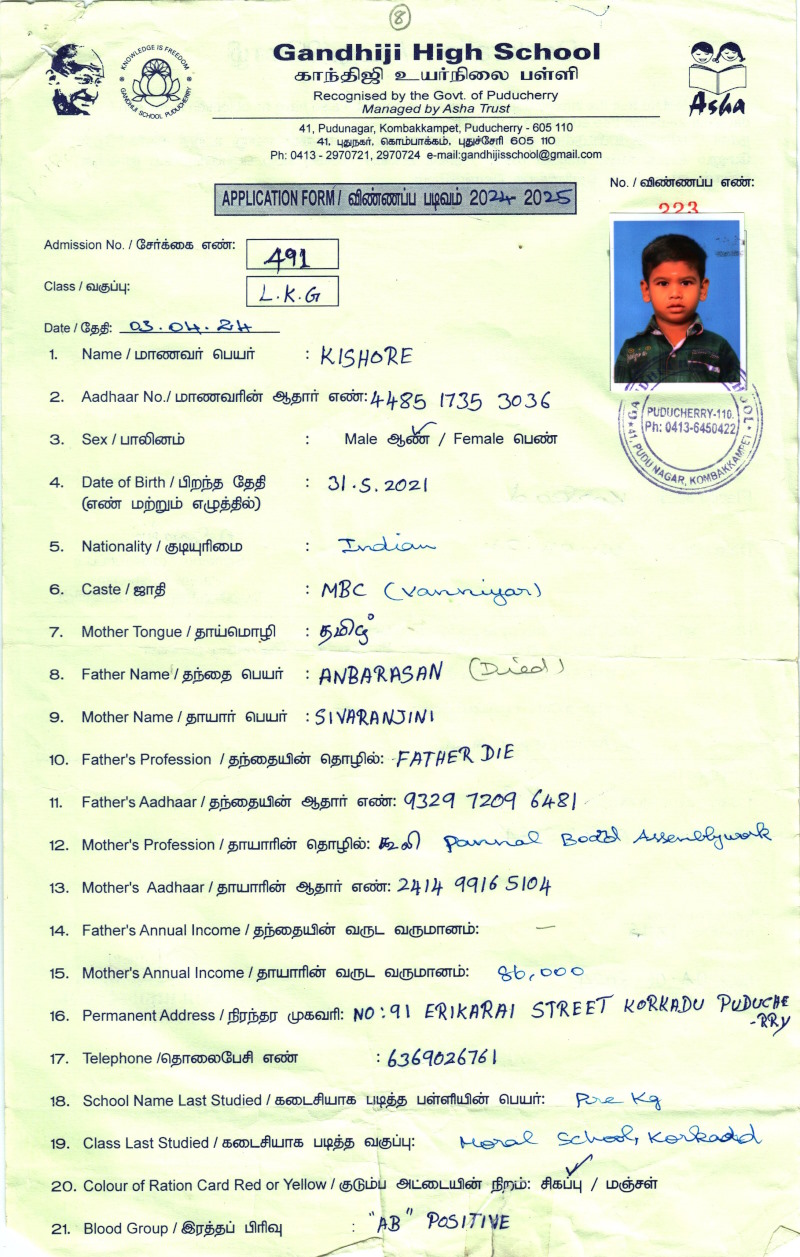 8
KNOWLEDGE IS FREEDOM
GANDHIJI SCHOOL PUDUCHERRY
Gandhiji High School
காந்திஜி உயர்நிலை பள்ளி
Recognised by the Govt. of Puducherry
Managed by Asha Trust
Asha
41, Pudunagar, Kombakkampet, Puducherry - 605 110
41, புதுநகர், கொம்பாக்கம், புதுச்சேரி 605 110
Ph: 0413 - 2970721, 2970724 e-mail:gandhijisschool@gmail.com
APPLICATION FORM / விண்ணப்ப படிவம் 2024- 2025
No. / விண்ணப்ப எண்:
223
Admission No. / சேர்க்கை எண்: 491
Class / வகுப்பு: L.K.G
Date / தேதி: 03.04.24
1. Name / மாணவர் பெயர் : KISHORE
2. Aadhaar No./ மாணவரின் ஆதார் எண்: 4485 1735 3036
PUDUCHERRY-110.
Ph: 0413-6450422
41, PUDU NAGAR, KOMBAKKAMPET
3. Sex / பாலினம் : Male ஆண் / Female பெண்
4. Date of Birth / பிறந்த தேதி : 31.5.2021
(எண் மற்றும் எழுத்தில்)
5. Nationality / குடியுரிமை : Indian
6. Caste / ஜாதி : MBC (Vanniyar)
7. Mother Tongue / தாய்மொழி : தமிழ்
8. Father Name / தந்தை பெயர் : ANBARASAN (Died)
9. Mother Name / தாயார் பெயர் : SIVARANJINI
10. Father's Profession / தந்தையின் தொழில்: FATHER DIE
11. Father's Aadhaar / தந்தையின் ஆதார் எண்: 9329 7209 6481
12. Mother's Profession / தாயாரின் தொழில்: கூலி Pannal Bodd Assemblywork
13. Mother's Aadhaar / தாயாரின் ஆதார் எண்: 2414 9916 5104
14. Father's Annual Income / தந்தையின் வருட வருமானம்: —
15. Mother's Annual Income / தாயாரின் வருட வருமானம்: 86,000
16. Permanent Address / நிரந்தர முகவரி: NO:91 ERIKARAI STREET KORKADU PUDUCHE
-RRY
17. Telephone /தொலைபேசி எண் : 6369026761
18. School Name Last Studied / கடைசியாக படித்த பள்ளியின் பெயர்: Pre Kg
19. Class Last Studied / கடைசியாக படித்த வகுப்பு: Moral School, Korkadd
20. Colour of Ration Card Red or Yellow / குடும்ப அட்டையின் நிறம்: சிகப்பு / மஞ்சள்
21. Blood Group / இரத்தப் பிரிவு : "AB" POSITIVE